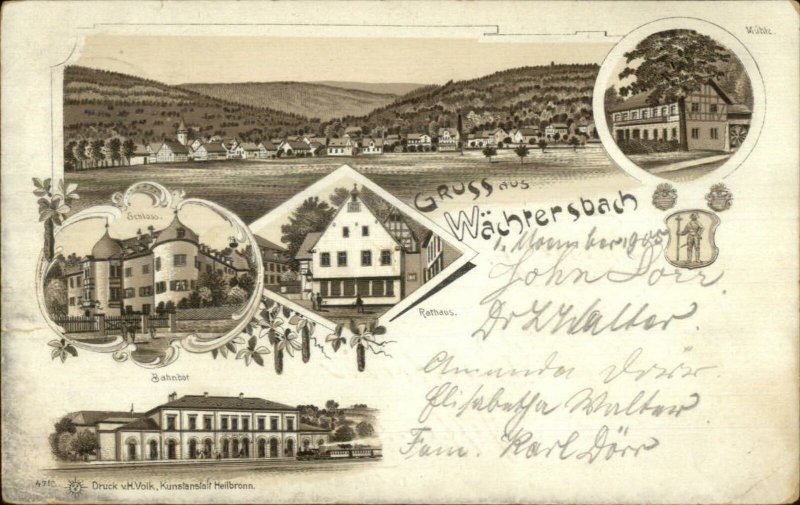 Mühle.
GRUSS aus
Wächtersbach
Schloss.
Rathaus.
Bahnhof
1. November 1905
John Dörr
Dr L Walter
Amanda Dörr.
Elisabetha Walter
Fam. Karl Dörr
Druck v. H. Volk, Kunstanstalt Heilbronn.